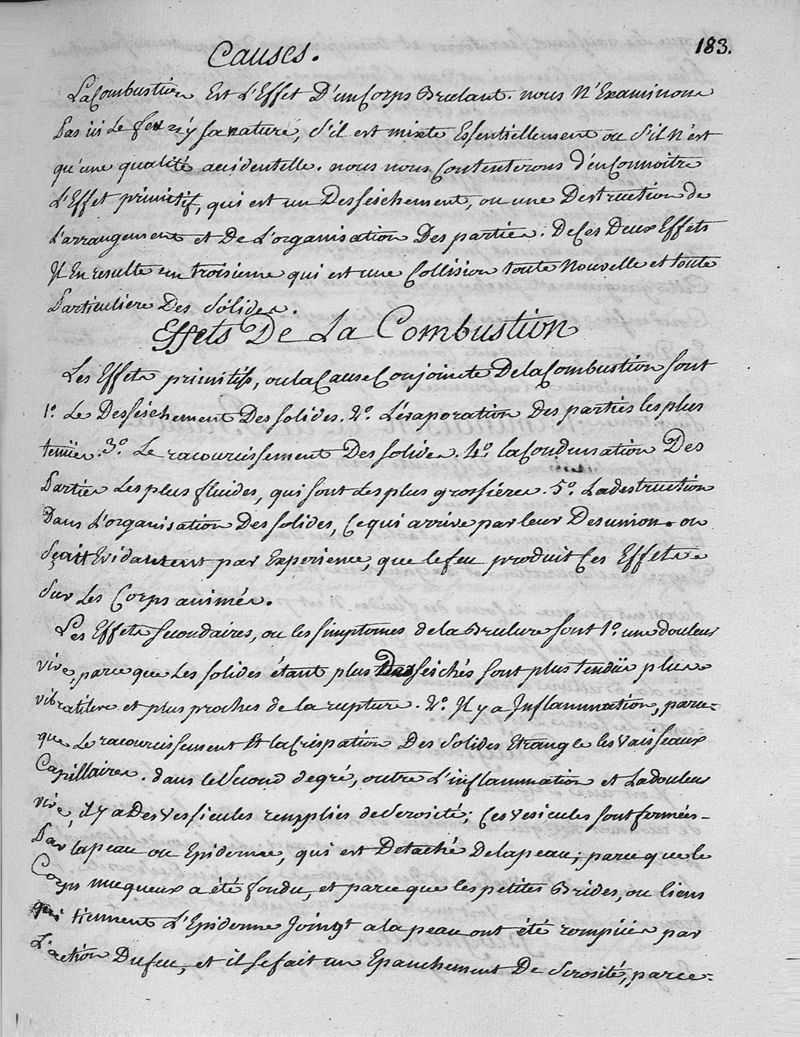 183.
Causes.
La Combustion Est L'Effet D'un Corps Brulant. nous N'Examinons
Pas ici Le feu n'y sa nature, S'il est mixte Essentiellement ou S'il N'est
qu'une qualité accidentelle. nous nous Contenterons D'en Connoitre
L'Effet primitif, qui est un Desséichement, ou une Destruction de
L'arrangement et De L'organisation Des parties. De Ces Deux Effets
Il En resulte un troisieme qui est une Collision toute Nouvelle et toute
Particuliere Des Solides.
Effets De La Combustion
Les Effets primitifs, ou la Cause Conjointe De la Combustion sont
1º. Le Desséichement Des solides. 2º. L'ésaporation Des parties les plus
tenües. 3º. Le racourcissement Des solides. 4º. la Condensation Des
Parties Les plus fluides, qui sont Les plus grossières. 5º. La destruction
Dans L'organisation Des solides, Ce qui arrive par leur Desunion. on
Sçait Evidantent par Experience, que le feu produit Ces Effets
Sur Les Corps animés.
Les Effets secondaires, ou les simptomes de la Brulure sont 1º. une douleur
vive, parce que Les solides étant plus Desséichés sont plus tendüs plus
vibratilles et plus proches de la rupture. 2º. Il y a Inflammation, parce-
que Le racourcissement Et la Crispation Des Solides Etrangle les Vaisseaux
Capillaires. dans le Second degré, outre L'inflammation et La douleur
vive, il y a Des Vessicules remplies de Serosité; Ces vesicules sont formées-
Par la peau ou Epiderme, qui est Detaché De la peau; parce que le
Corps muqueux a été fondu, et parce que les petites Brides, ou liens
qui tiennent L'Epiderme Joingt a la peau ont été rompües par
L'action Du feu, et il se fait un Epanchement De Serosité, parce-